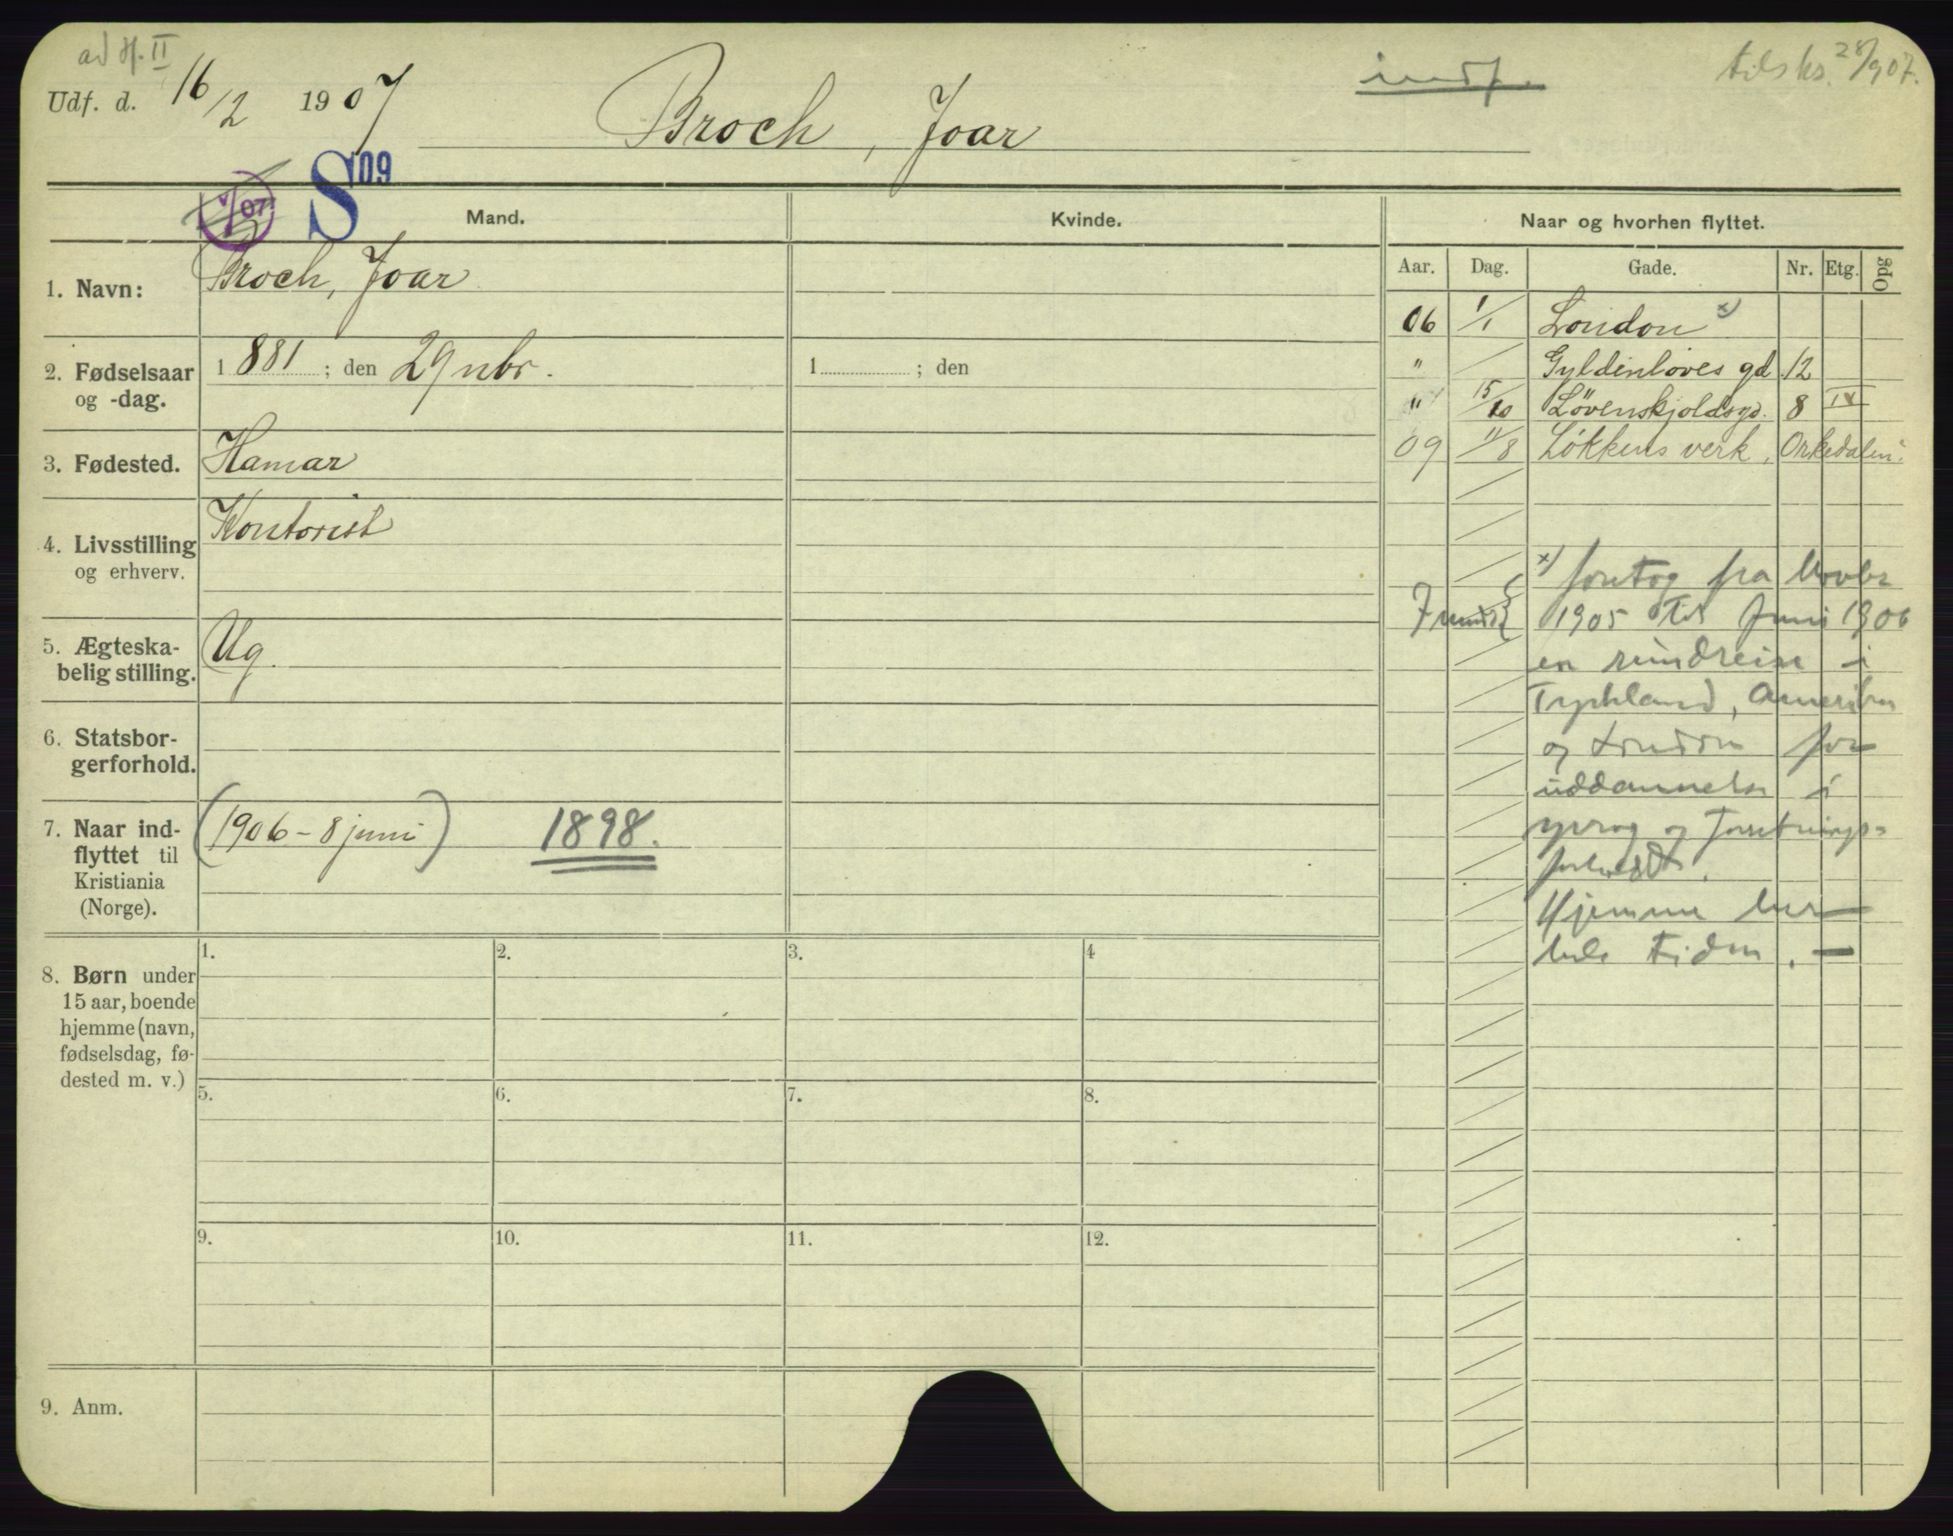 ad Hf. II
Udf. d. 16/2 1907
Broch, Joar
indf.
tilskr. 28/907.
V/07
S 09
Mand.
Kvinde.
Naar og hvorhen flyttet.
Aar. Dag. Gade. Nr. Etg. Opg
1. Navn: Broch, Joar
2. Fødselsaar og -dag. 1881; den 29 nbr.
1 ; den
3. Fødested. Hamar
4. Livsstilling og erhverv. Kontorist
5. Ægteska-
belig stilling. Ug.
6. Statsbor-
gerforhold.
7. Naar ind-
flyttet til
Kristiania
(Norge).
(1906 - 8 juni) 1898.
8. Børn under
15 aar, boende
hjemme (navn,
fødselsdag, fø-
dested m. v.)
1. 2. 3. 4
5. 6. 7. 8.
9. 10. 11. 12.
9. Anm.
06 1/1 London x)
" Gyldenløves gd. 12
" 15/10 Løvenskjoldsgd. 8 IV
09 11/8 Løkkens verk, Orkedalen.
x) foretog fra Novbr
1905 til Juni 1906
en rundreise i
Tyskland, Amerika
og London for
uddannelse i
sprog og Forretnings-
Hjemme her
hele tiden. —